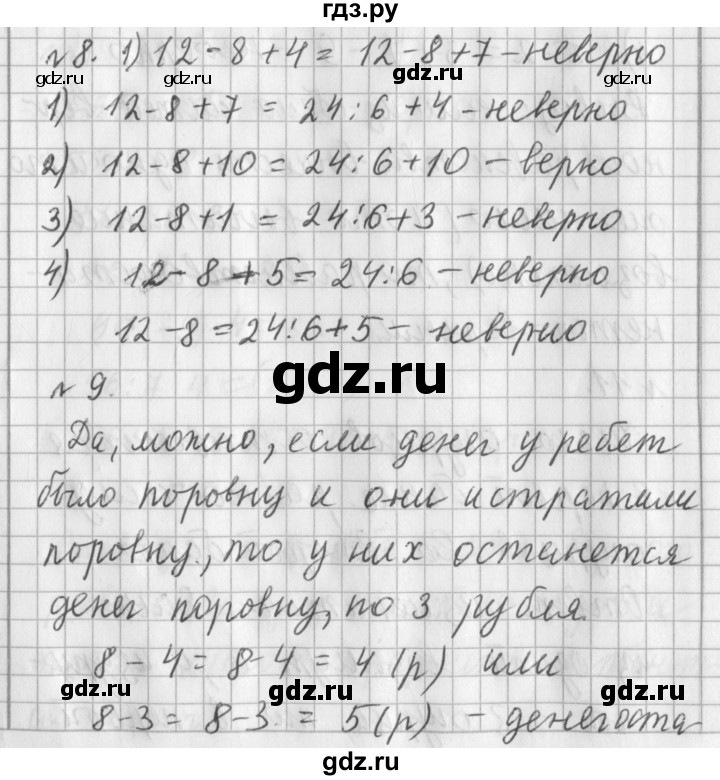 гдз.ру
№8. 1) 12-8+4= 12-8+7-неверно
gdz.ru gdz.ru gdz.ru
1) 12-8+7 = 24:6+4-неверно
2) 12-8+10=24:6+10-верно
3) 12-8+1 = 24:6+3-неверно
gdz.ru gdz.ru
4) 12-8+5=24:6-неверно
12-8=24:6+5-неверно
gdz.ru
№9.
Да, можно, если денег у ребет
было поровну и они истратили
gdz.ru gdz.ru
поровну, то у них останется
денег поровну, по 3 рубля.
8-4=8-4=4(р) или
gdz.ru gdz.ru
8-3=8-3.=5(р) - денег оста
gdz.ru